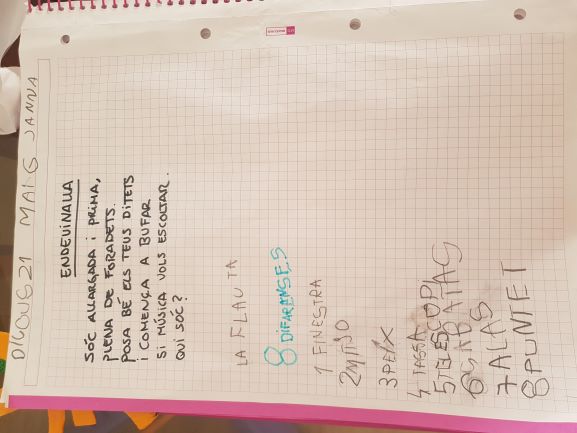 DIJOUS 21 MAIG JANNA
ENDEVINALLA
SÓC ALLARGADA I PRIMA,
PLENA DE FORADETS.
POSA BÉ ELS TEUS DITETS
I COMENÇA A BUFAR
SI MÚSICA VOLS ESCOLTAR.
QUI SÓC?
LA FLAUTA
8 DIFARENSES
1 FINESTRA
2
3 PEIX
4 TASSA
5 TELESCOPI
6 SABATAS
7 ALAS
8 PUNTET